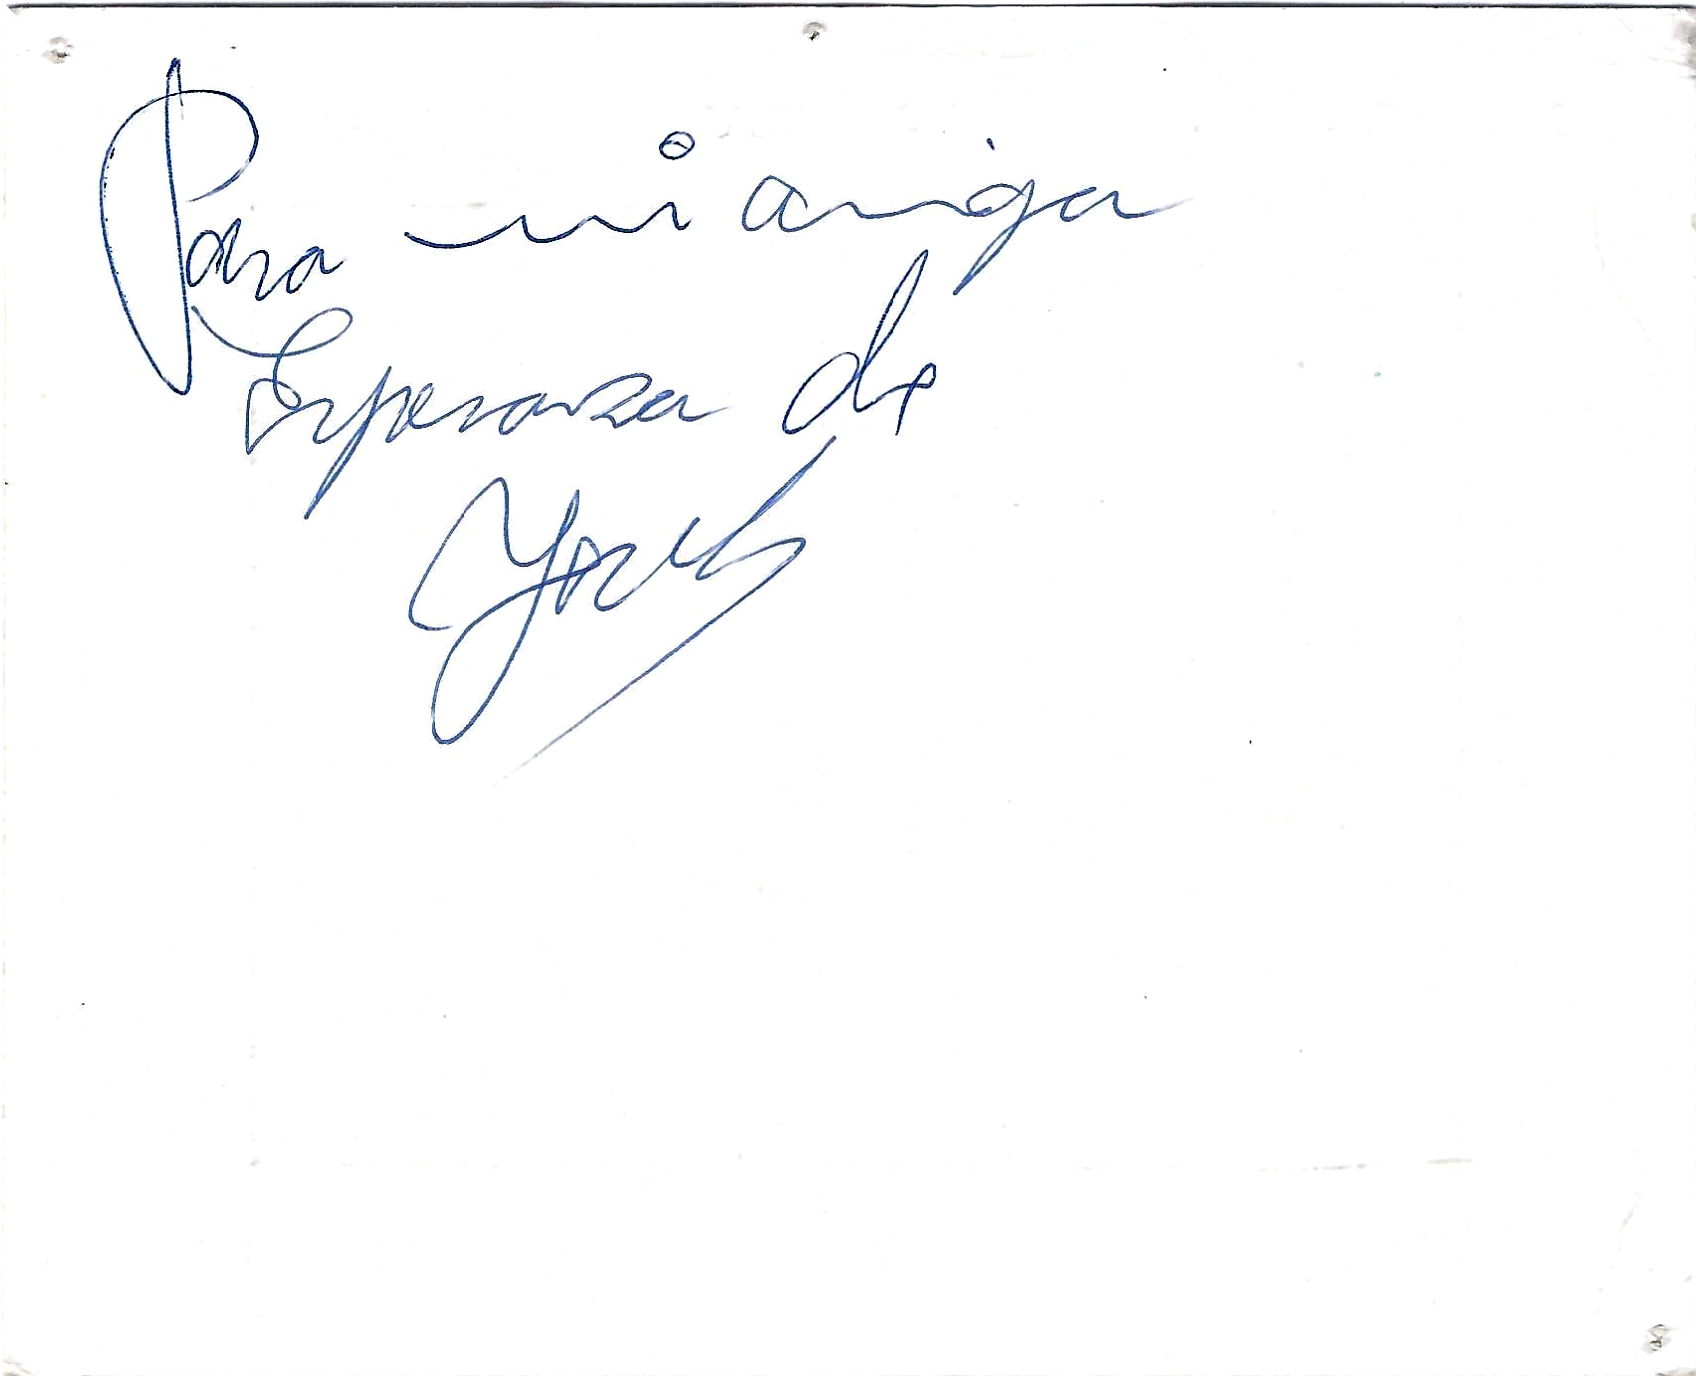 Para mi amiga
Esperanza de